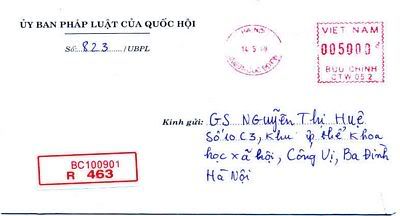 ỦY BAN PHÁP LUẬT CỦA QUỐC HỘI
Số: 823 / UBPL
HÀ NỘI
14.5.99
VIET NAM
005000đ
BƯU CHÍNH
CTW 052
Kính gửi: GS NGUyễn Thị HUệ
Số 10 C3, Khu tập thể Khoa
học xã hội, Cống Vị, Ba Đình
Hà Nội
BC100901
R 463